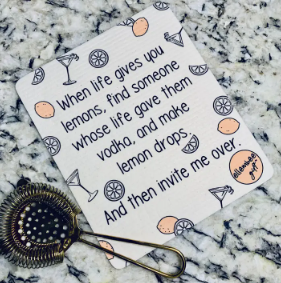 When life gives you
lemons, find someone
whose life gave them
vodka, and make
lemon drops.
And then invite me over.